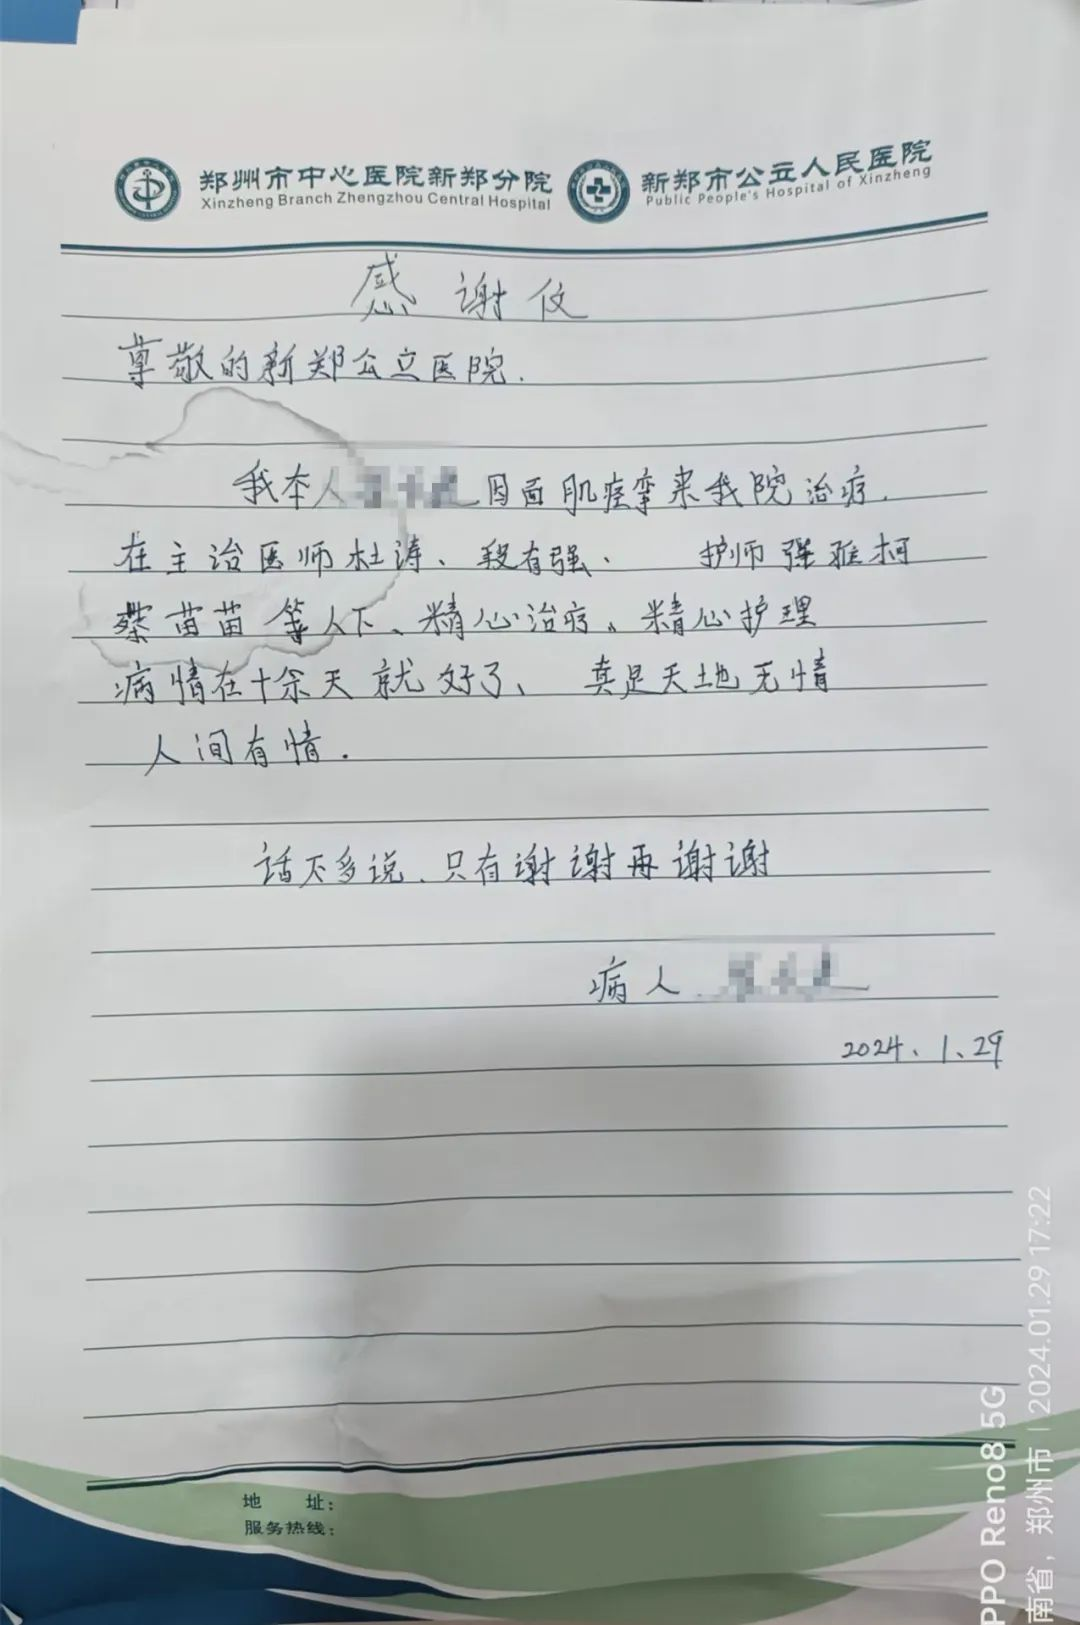 郑州市中心医院新郑分院
Xinzheng Branch Zhengzhou Central Hospital
新郑市公立人民医院
Public People's Hospital of Xinzheng
感谢
尊敬的新郑公立医院.
我本人 因面肌痉挛来我院治疗.
在主治医师杜涛、段有强、 护师强雅柯
蔡苗苗等人下、精心治疗。精心护理
病情在十余天就好了、真是天地无情
人间有情.
话不多说.只有谢谢再谢谢
病人.
2024.1.29
地 址:
服务热线:
PPO Reno8 5G
南省，郑州市 | 2024.01.29 17:22